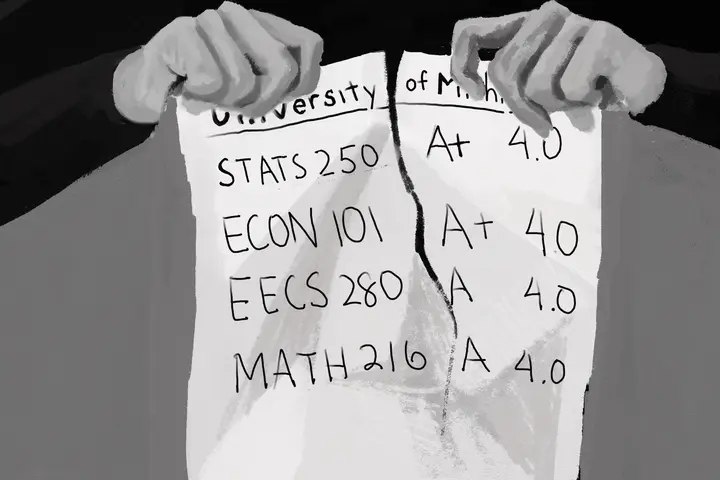 University of
STATS 250 A+ 4.0
ECON 101 A+ 4.0
EECS 280 A 4.0
MATH 216 A 4.0